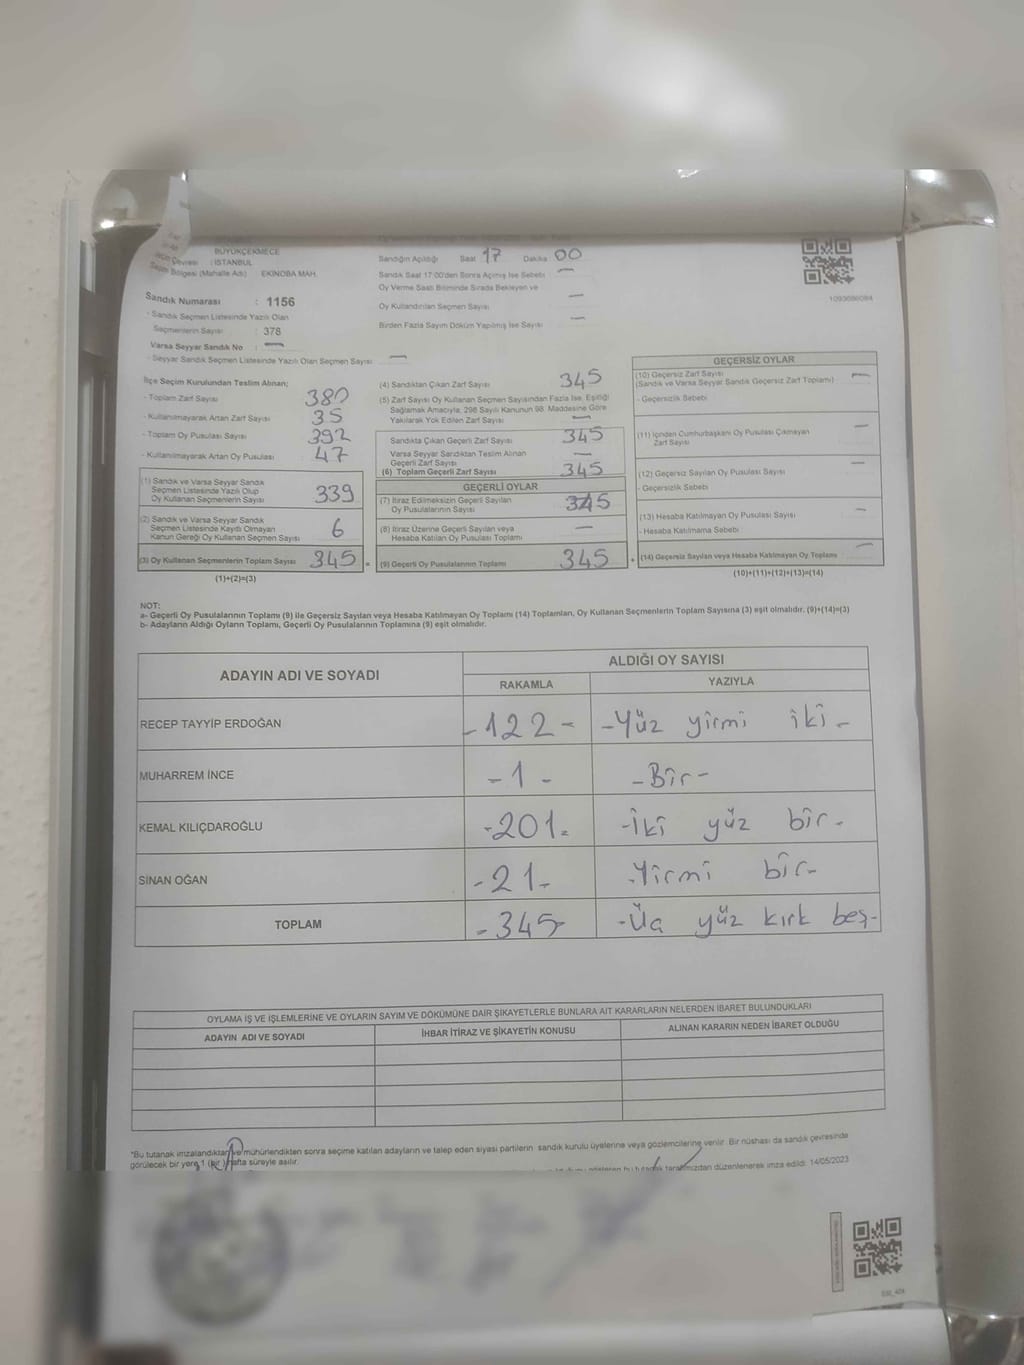 BÜYÜKÇEKMECE
Seçim Çevresi : İSTANBUL
Seçim Bölgesi (Mahalle Adı) EKİNOBA MAH.
Sandık Numarası : 1156
- Sandık Seçmen Listesinde Yazılı Olan
Seçmenlerin Sayısı : 378
Varsa Seyyar Sandık No : —
- Seyyar Sandık Seçmen Listesinde Yazılı Olan Seçmen Sayısı : —
İlçe Seçim Kurulundan Teslim Alınan;
- Toplam Zarf Sayısı 380
- Kullanılmayarak Artan Zarf Sayısı 35
- Toplam Oy Pusulası Sayısı 392
- Kullanılmayarak Artan Oy Pusulası 47
(1) Sandık ve Varsa Seyyar Sandık
Seçmen Listesinde Yazılı Olup
Oy Kullanan Seçmenlerin Sayısı 339
(2) Sandık ve Varsa Seyyar Sandık
Seçmen Listesinde Kayıtlı Olmayan
Kanun Gereği Oy Kullanan Seçmen Sayısı 6
(3) Oy Kullanan Seçmenlerin Toplam Sayısı 345 =
(1)+(2)=(3)
Sandığın Açıldığı Saat 17 Dakika 00
Sandık Saat 17:00'den Sonra Açılmış İse Sebebi : —
Oy Verme Saati Bitiminde Sırada Bekleyen ve
Oy Kullandırılan Seçmen Sayısı : —
Birden Fazla Sayım Döküm Yapılmış İse Sayısı : —
(4) Sandıktan Çıkan Zarf Sayısı 345
(5) Zarf Sayısı Oy Kullanan Seçmen Sayısından Fazla İse, Eşitliği
Sağlamak Amacıyla, 298 Sayılı Kanunun 98. Maddesine Göre
Yakılarak Yok Edilen Zarf Sayısı —
Sandıkta Çıkan Geçerli Zarf Sayısı 345
Varsa Seyyar Sandıktan Teslim Alınan
Geçerli Zarf Sayısı —
(6) Toplam Geçerli Zarf Sayısı 345
GEÇERLİ OYLAR
(7) İtiraz Edilmeksizin Geçerli Sayılan
Oy Pusulalarının Sayısı 345
(8) İtiraz Üzerine Geçerli Sayılan veya
Hesaba Katılan Oy Pusulası Toplamı —
(9) Geçerli Oy Pusulalarının Toplamı 345 +
1093686084
GEÇERSİZ OYLAR
(10) Geçersiz Zarf Sayısı
(Sandık ve Varsa Seyyar Sandık Geçersiz Zarf Toplamı) —
- Geçersizlik Sebebi
(11) İçinden Cumhurbaşkanı Oy Pusulası Çıkmayan
Zarf Sayısı —
(12) Geçersiz Sayılan Oy Pusulası Sayısı —
- Geçersizlik Sebebi
(13) Hesaba Katılmayan Oy Pusulası Sayısı —
- Hesaba Katılmama Sebebi
(14) Geçersiz Sayılan veya Hesaba Katılmayan Oy Toplamı —
(10)+(11)+(12)+(13)=(14)
NOT:
a- Geçerli Oy Pusulalarının Toplamı (9) ile Geçersiz Sayılan veya Hesaba Katılmayan Oy Toplamı (14) Toplamları, Oy Kullanan Seçmenlerin Toplam Sayısına (3) eşit olmalıdır. (9)+(14)=(3)
b- Adayların Aldığı Oyların Toplamı, Geçerli Oy Pusulalarının Toplamına (9) eşit olmalıdır.
ADAYIN ADI VE SOYADI ALDIĞI OY SAYISI
RAKAMLA YAZIYLA
RECEP TAYYİP ERDOĞAN -122- -Yüz yirmi iki-
MUHARREM İNCE -1- -Bir-
KEMAL KILIÇDAROĞLU -201- -İki yüz bir-
SİNAN OĞAN -21- -Yirmi bir-
TOPLAM -345- -Üç yüz kırk beş-
OYLAMA İŞ VE İŞLEMLERİNE VE OYLARIN SAYIM VE DÖKÜMÜNE DAİR ŞİKAYETLERLE BUNLARA AİT KARARLARIN NELERDEN İBARET BULUNDUKLARI
ADAYIN ADI VE SOYADI İHBAR İTİRAZ VE ŞİKAYETİN KONUSU ALINAN KARARIN NEDEN İBARET OLDUĞU
*Bu tutanak imzalandıktan ve mühürlendikten sonra seçime katılan adayların ve talep eden siyasi partilerin sandık kurulu üyelerine veya gözlemcilerine verilir. Bir nüshası da sandık çevresinde
görülecek bir yere 1 (bir) hafta süreyle asılır.
gösteren bu tutanak tarafımızdan düzenlenerek imza edildi. 14/05/2023